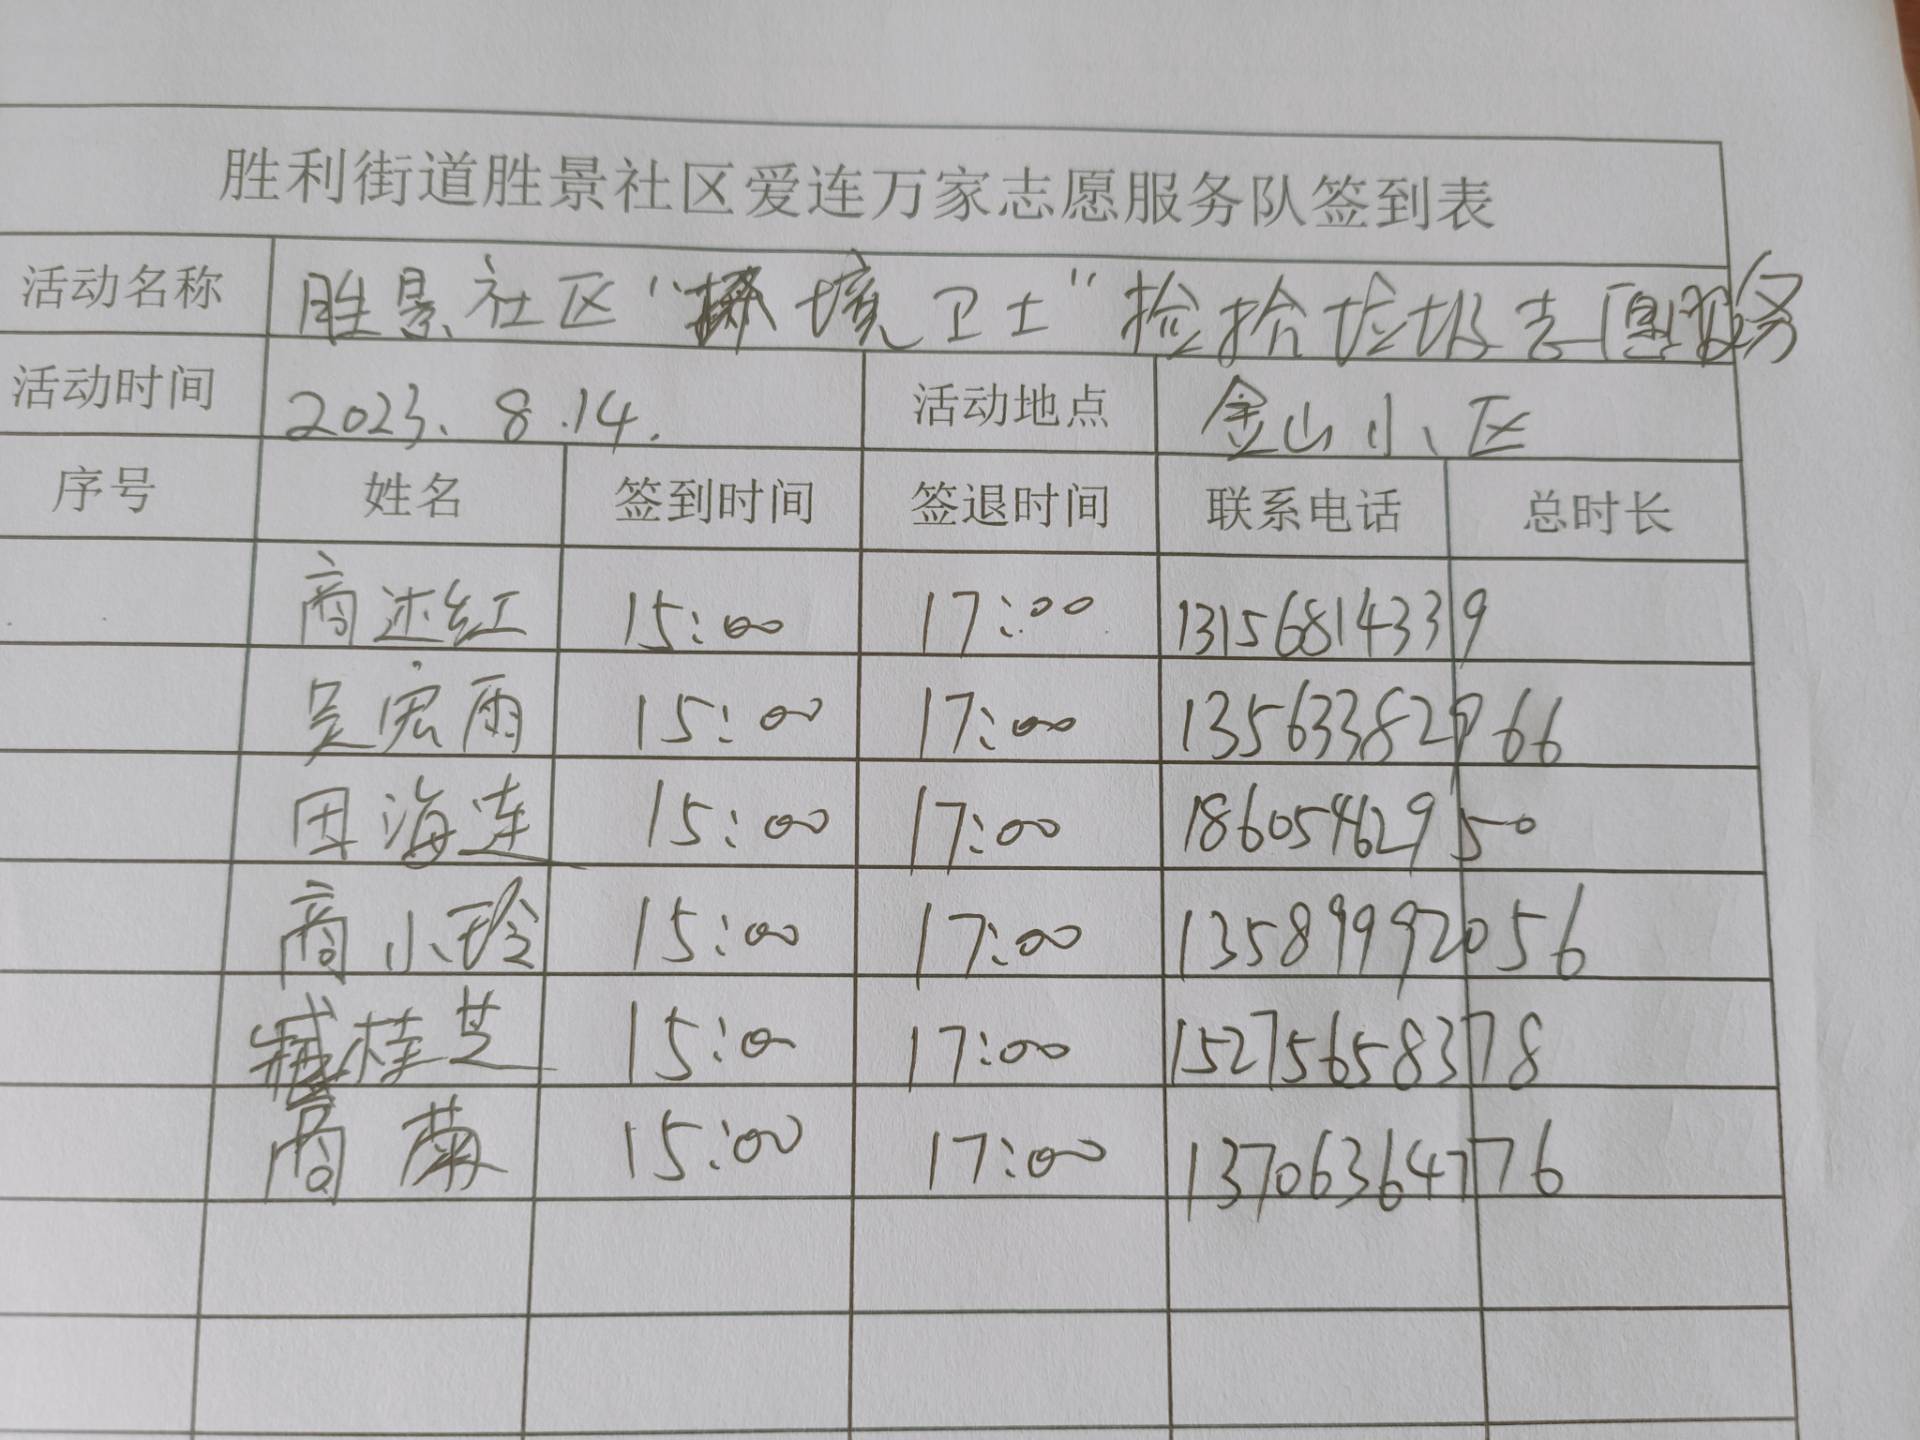 胜利街道胜景社区爱连万家志愿服务队签到表
活动名称 胜景社区“环境卫士”捡拾垃圾志愿服务
活动时间 2023.8.14. 活动地点 金山小区
序号 姓名 签到时间 签退时间 联系电话 总时长
商述红 15:00 17:00 13156814339
吴宏雨 15:00 17:00 13563382966
田海连 15:00 17:00 18605462950
商小玲 15:00 17:00 13589992056
臧桂芝 15:0 17:00 15275658378
商菊 15:00 17:00 13706364776